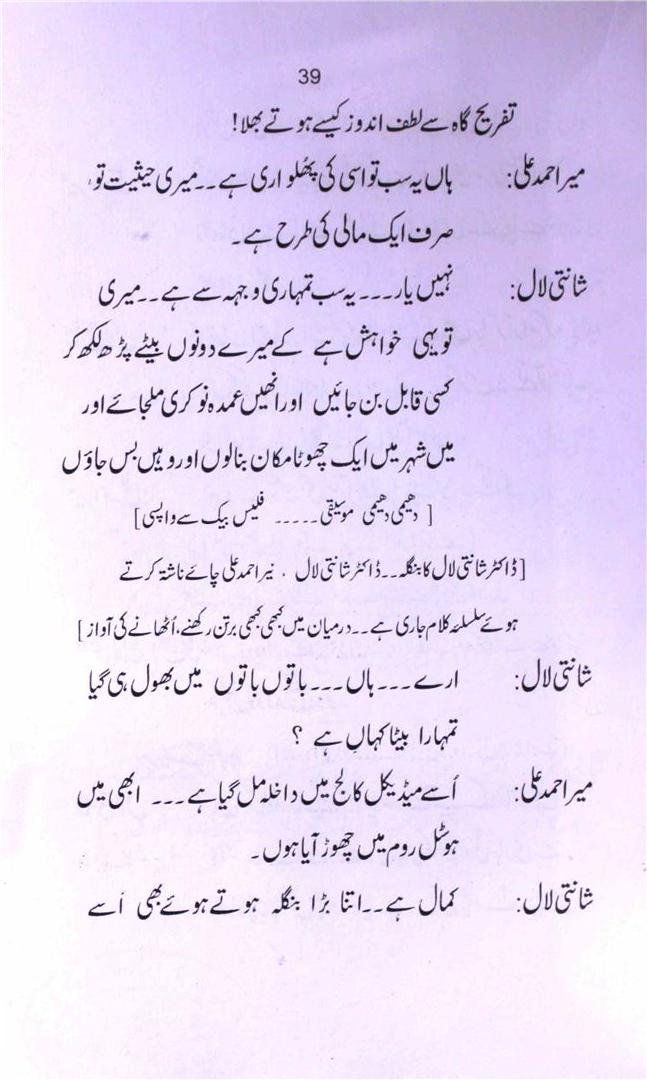 39
تفریح گاہ سے لطف اندوز کیسے ہوتے بھلا!
میر احمد علی: ہاں یہ سب تو اسی کی پُھلواری ہے۔۔میری حیثیت تو،
صرف ایک مالی کی طرح ہے۔
شانتی لال: نہیں یار۔۔۔یہ سب تمہاری وجہہ سے ہے۔۔میری
تو یہی خواہش ہے کے میرے دونوں بیٹے پڑھ لکھ کر
کسی قابل بن جائیں اور انھیں عمدہ نوکری ملجائے اور
میں شہر میں ایک چھوٹا مکان بنالوں اور وہیں بس جاؤں
[ دھیمی دھیمی موسیقی۔۔۔۔۔ فلیس بیک سے واپسی]
[ڈاکٹر شانتی لال کا بنگلہ۔۔ڈاکٹر شانتی لال ۔ نیر احمد علی چائے ناشتہ کرتے
ہوئے سلسلئہ کلام جاری ہے۔۔درمیان میں کبھی کبھی برتن رکھنے، اُٹھانے کی آواز ]
شانتی لال: ارے۔۔۔ہاں۔۔۔باتوں باتوں میں بھول ہی گیا
تمہارا بیٹا کہاں ہے ؟
میر احمد علی: اُسے میڈیکل کالج میں داخلہ مل گیا ہے۔۔۔ ابھی میں
ہوسٹل روم میں چھوڑ آیا ہوں۔
شانتی لال: کمال ہے۔۔اتنا بڑا بنگلہ ہوتے ہوئے بھی اُسے